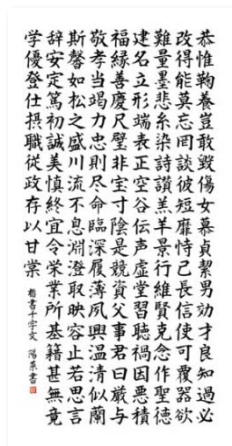 恭惟鞠養豈敢毀傷女慕貞絜男効才良知過必
改得能莫忘罔談彼短靡恃己長信使可覆器欲
難量墨悲糸染詩讃羔羊景行維賢克念作聖徳
建名立形端表正空谷伝声虚堂習聴禍因悪積
福縁善慶尺璧非宝寸陰是競資父事君曰厳与
敬孝当竭力忠則尽命臨深履薄夙興温清似蘭
斯馨如松之盛川流不息淵澄取映容止若思言
辞安定篤初誠美慎終宜令栄業所基籍甚無竟
学優登仕摂職従政存以甘棠 楷書千字文